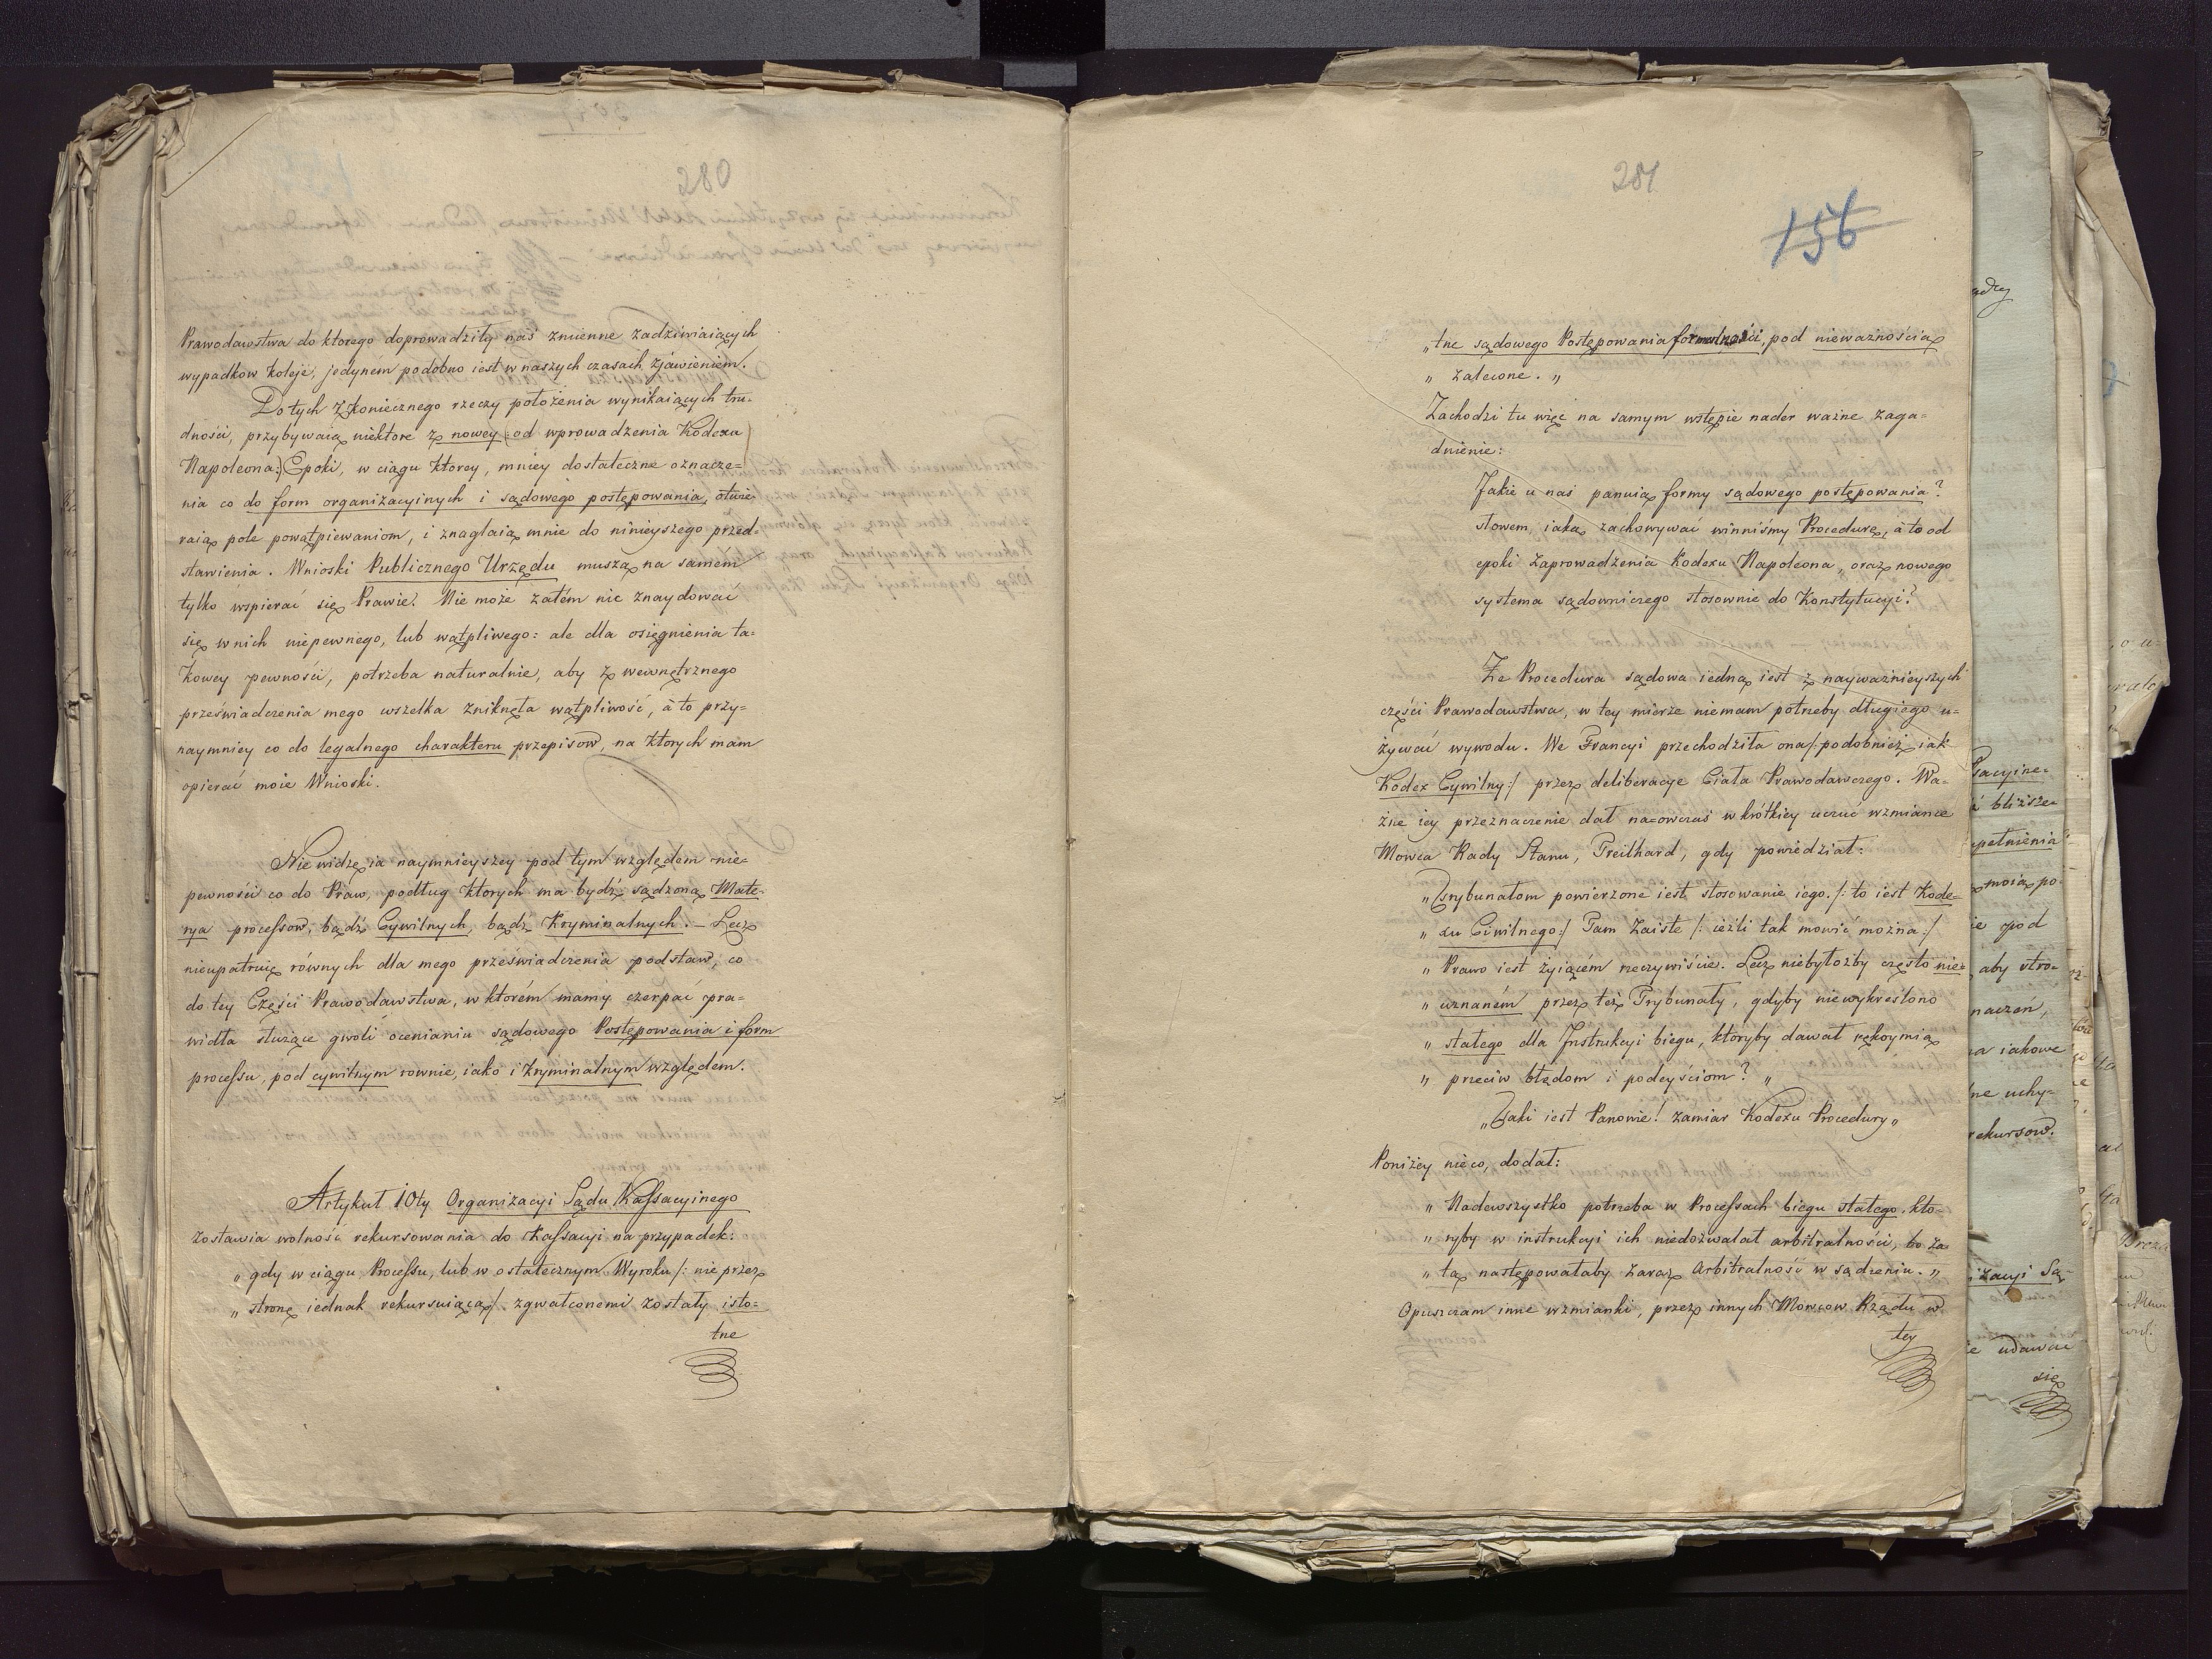 280
Prawodawstwa do ktorego doprowadziły nas zmienne zadziwiaiących
wypadkow koleje, jedyném podobno iest w naszych czasach zjawieniem.
Do tych z koniecznego rzeczy położenia wynikaiących tru=
dności, przybywaią niektore z nowey (: od wprowadzenia Kodexu
Napoleona:) Epoki, w ciągu ktorey, mniey dostateczne oznacze=
nia co do form organizacyinych i sądowego postępowania, otwie=
raią pole powątpiewaniom, i znaglaią mnie do ninieyszego przed=
stawienia. Wnioski Publicznego Urzędu muszą na samem
tylko wspierać się Prawie. Nie może zatém nic znaydować
się w nich niepewnego, lub wątpliwego: ale dla osięgnienia ta=
kowey pewności, potrzeba naturalnie, aby z wewnętrznego
przeświadczenia mego wszelka zniknęła wątpliwość, à to przy=
naymniey co do legalnego charakteru przepisow, na ktorych mam
opierać moie Wnioski.
Nie widzę ia naymnieyszey pod tym względem nie=
pewności co do Praw, podług ktorych ma bydź sądzoną Mate=
rya processow, bądź Cywilnych, bądź Kryminalnych. — Lecz
nieupatruię równych dla mego przeświadczenia podstaw, co
do tey Części Prawodawstwa, w ktorém mamy czerpać pra=
widła służące gwoli ocenianiu sądowego Postępowania i form
processu, pod cywilnym rownie, iako i kryminalnym względem.
Artykuł 10ty Organizacyi Sądu Kassacyinego
zostawia wolność rekursowania do Kassacyi na przypadek:
„ gdy w ciągu Processu, lub w ostatecznym Wyroku /: nie przez
„ stronę iednak rekursuiącą :/ zgwałconemi zostały isto=
tne
281
156
„ tne sądowego Postępowania formalności, pod nieważnością
„ zalecone. „
Zachodzi tu więc na samym wstępie nader ważne zaga=
dnienie:
Jakie u nas panuią formy sądowego postępowania?
słowem, iaką zachowywać winniśmy Procedurę, à to od
epoki zaprowadzenia Kodexu Napoleona, oraz nowego
systema sądowniczego stosownie do Konstytucyi?
Że Procedura sądowa iedną iest z nayważnieyszych
części Prawodawstwa, w tey mierze niemam potrzeby długiego u=
żywać wywodu. We Francyi przechodziła ona /: podobnież iak
Kodex Cywilny :/ przez deliberacye Ciała Prawodawczego. Wa=
żne iey przeznaczenie dał na=owczas w krótkiey uczuć wzmiance
Mowca Rady Stanu, Treilhard, gdy powiedział:
„ Trybunałom powierzone iest stosowanie iego. /: to iest Kode=
„ xu Ciwilnego :/ Tam zaiste /: ieźli tak mowić można :/
„ Prawo iest żyiącém rzeczywiście. Lecz niebyłożby często nie=
„ uznaném przez też Trybunały, gdyby niewykreślono
„ stałego dla Instrukcyi biegu, któryby dawał rękoymią
„ przeciw błędom i podeyściom? „
„ Taki iest Panowie! zamiar Kodexu Procedury „
Poniżey nieco, dodał:
„ Nadewszystko potrzeba w Processach biegu stałego, kto=
„ ryby w instrukcyi ich niedozwalał arbitralności, bo za
„ tą następowałaby zaraz Arbitralność w sądzeniu. „
Opuszczam inne wzmianki, przez innych Mowcow Rządu w
tey
bliższe
moią po=
pod
aby stro=
iakowe
rekursow.
udawać
się